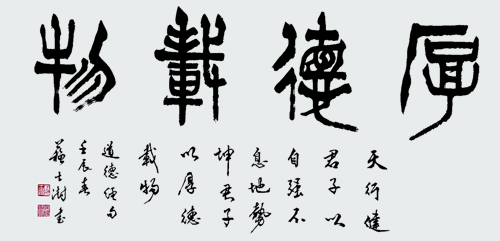 厚德載物
天行健
君子以
自强不
息地勢
坤君子
以厚德
載物
道德句
壬辰春
蘇士澍书